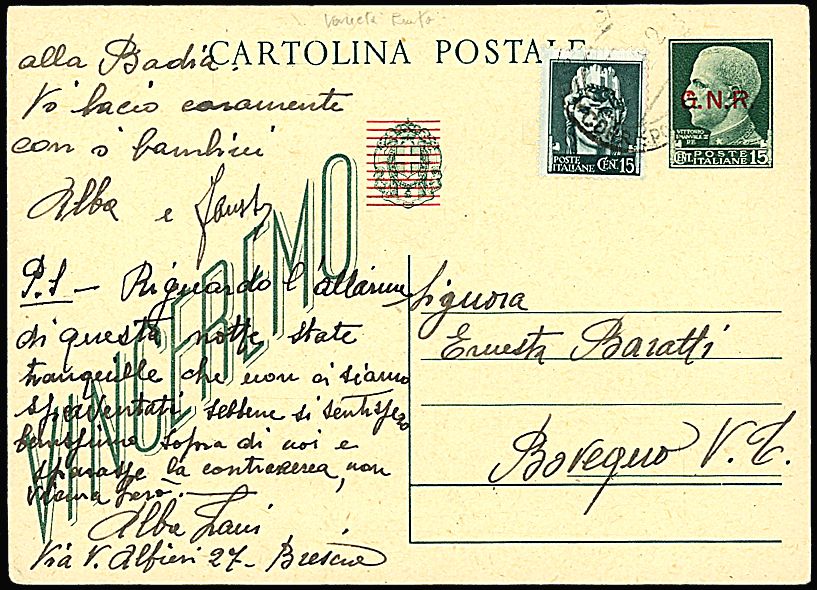 CARTOLINA POSTALE
alla Badia.
Vi bacio caramente
con i bambini
Alba e Fausto
P.S - Riguardo l'allarme
di questa notte state
tranquille che non ci siamo
spaventati sebbene si sentissero
benissimo sopra di noi e
sparasse la contraerea, non
vicina però.
Alba Zani
Via V. Alfieri 27 - Brescia
VINCEREMO
POSTE ITALIANE CEN. 15
G.N.R
VITTORIO EMANUELE III RE
POSTE ITALIANE
CENT. 15
Signora
Ernesta Baratti
Bovegno V. T.